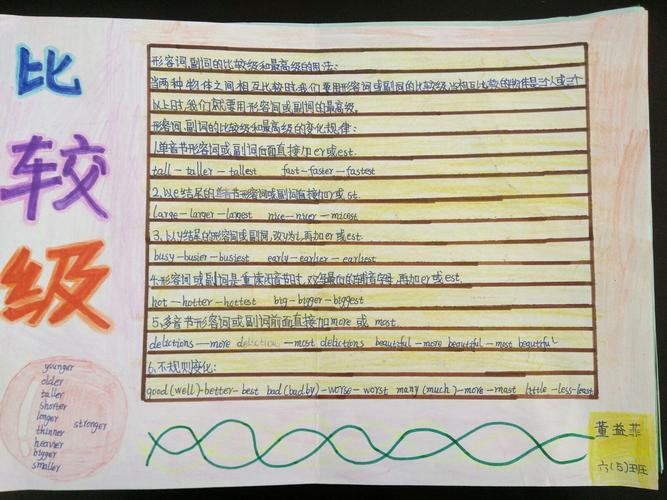 比
较
级
形容词,副词的比较级和最高级的用法:
当两种物体之间相互比较时,我们要用形容词或副词的比较级,当相互比较的物体是三个人或三个
以上时,我们就要用形容词或副词的最高级。
形容词,副词的比较级和最高级的变化规律:
1.单音节形容词或副词后面直接加er或est.
tall—taller—tallest fast—faster—fastest
2.以e结尾的单音节形容词或副词直接加r或st.
large—larger—largest nice—nicer—nicest
3.以y结尾的形容词或副词,改y为i,再加er或est.
busy—busier—busiest early—earlier—earliest
4.形容词或副词是重读闭音节时,双写最后的辅音字母,再加er或est.
hot—hotter—hottest big—bigger—biggest
5.多音节形容词或副词前面直接加more或 most.
delictions—more deliction—most delictions beautiful—more beautiful—most beautiful
6.不规则变化:
good(well)-better-best bad(badby)-worse-worst many(much)-more-mast little-less-least
younger
older
taller
shorter
longer
stronger
thinner
heavier
bigger
smaller
董益菲
六(5)班